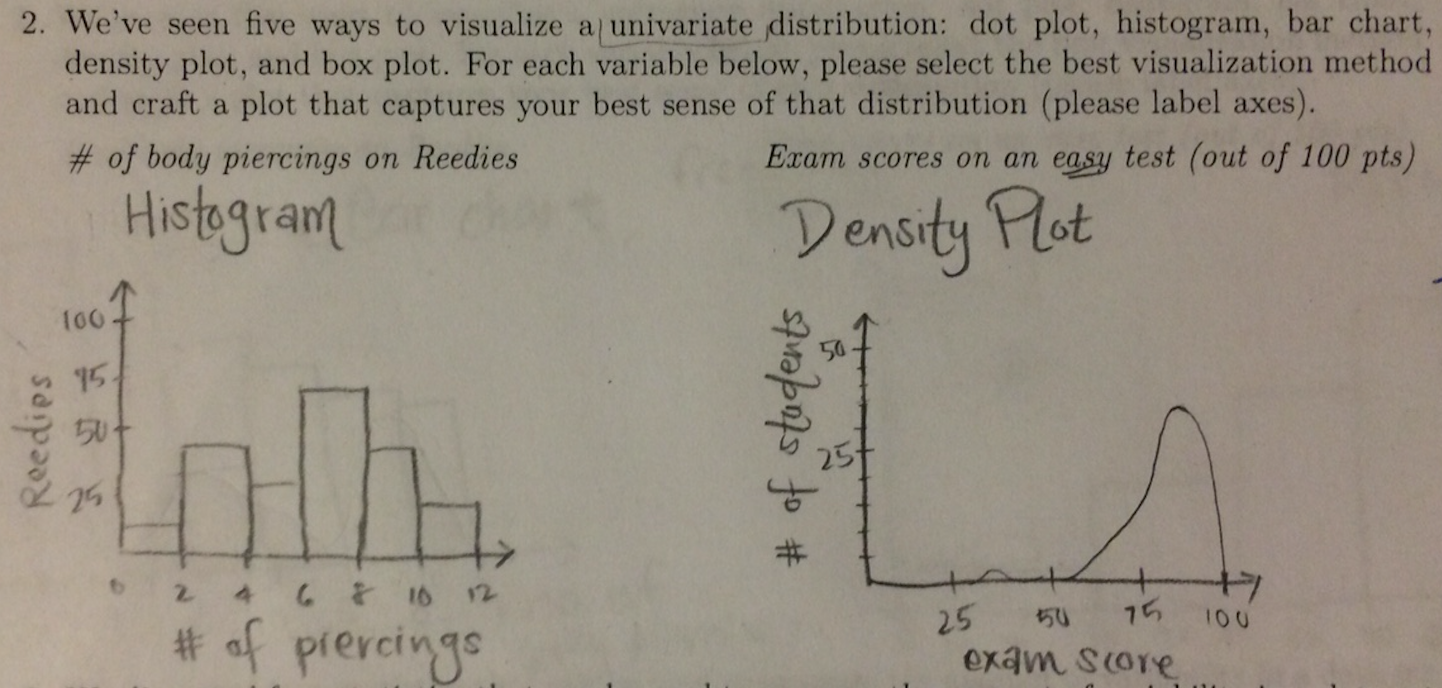 2. We've seen five ways to visualize a univariate distribution: dot plot, histogram, bar chart,
density plot, and box plot. For each variable below, please select the best visualization method
and craft a plot that captures your best sense of that distribution (please label axes).
# of body piercings on Reedies
Histogram
100
75
50
25
Reedies
0 2 4 6 8 10 12
# of piercings
Exam scores on an easy test (out of 100 pts)
Density Plot
50
25
# of students
25 50 75 100
exam score